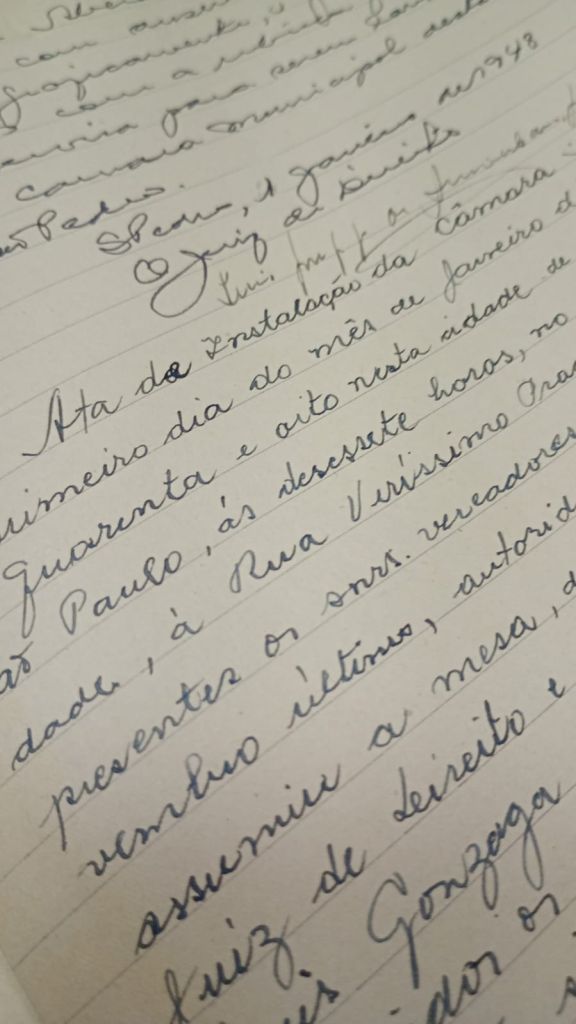 com
com a
para serem
camara municipal desta
São Pedro.
S Pedro, 1 janeiro de 1948
O Juiz de Direito
Ata de Instalação da Câmara
rimeiro dia do mês de Janeiro d
quarenta e oito nesta cidade de
ão Paulo, ás desessete horas, no
dade, à Rua Veríssimo Pra
presentes os snrs. vereadores
vembro último, autorid
assumiu a mesa, d
Juiz de Direito e
uis Gonzaga
dor os